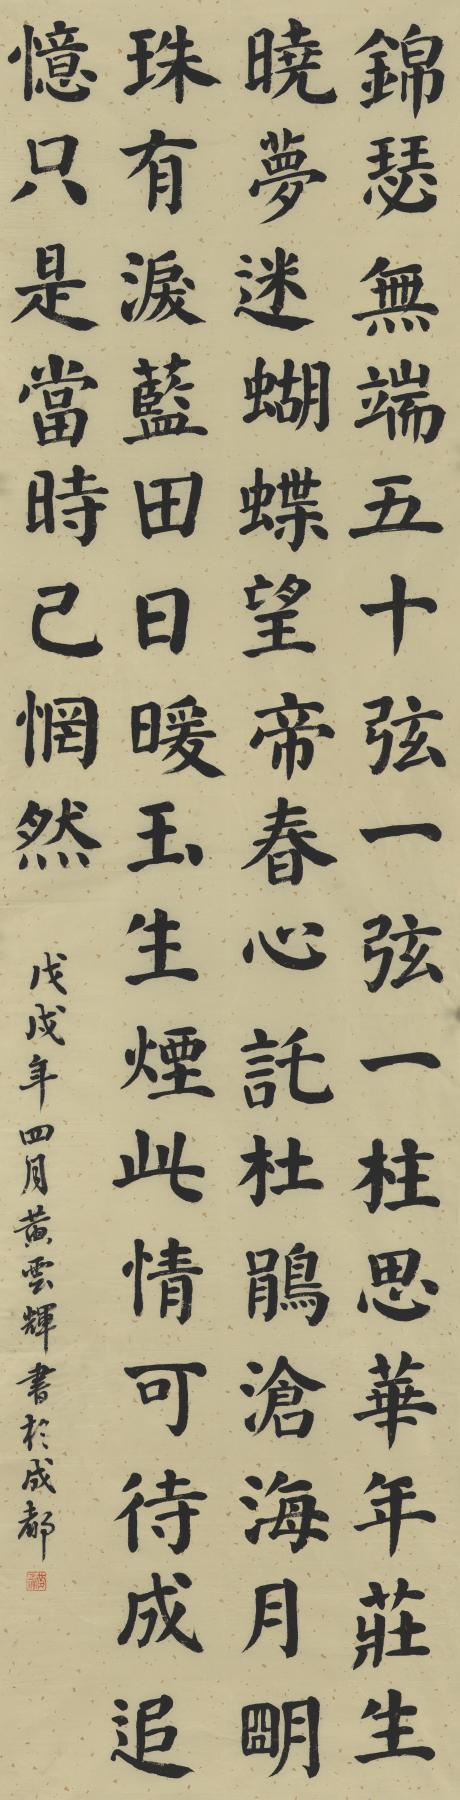 錦瑟無端五十弦一弦一柱思華年莊生
曉夢迷蝴蝶望帝春心託杜鵑滄海月朙
珠有淚藍田日暖玉生煙此情可待成追
憶只是當時已惘然
戊戌年四月黃雲輝書於成都